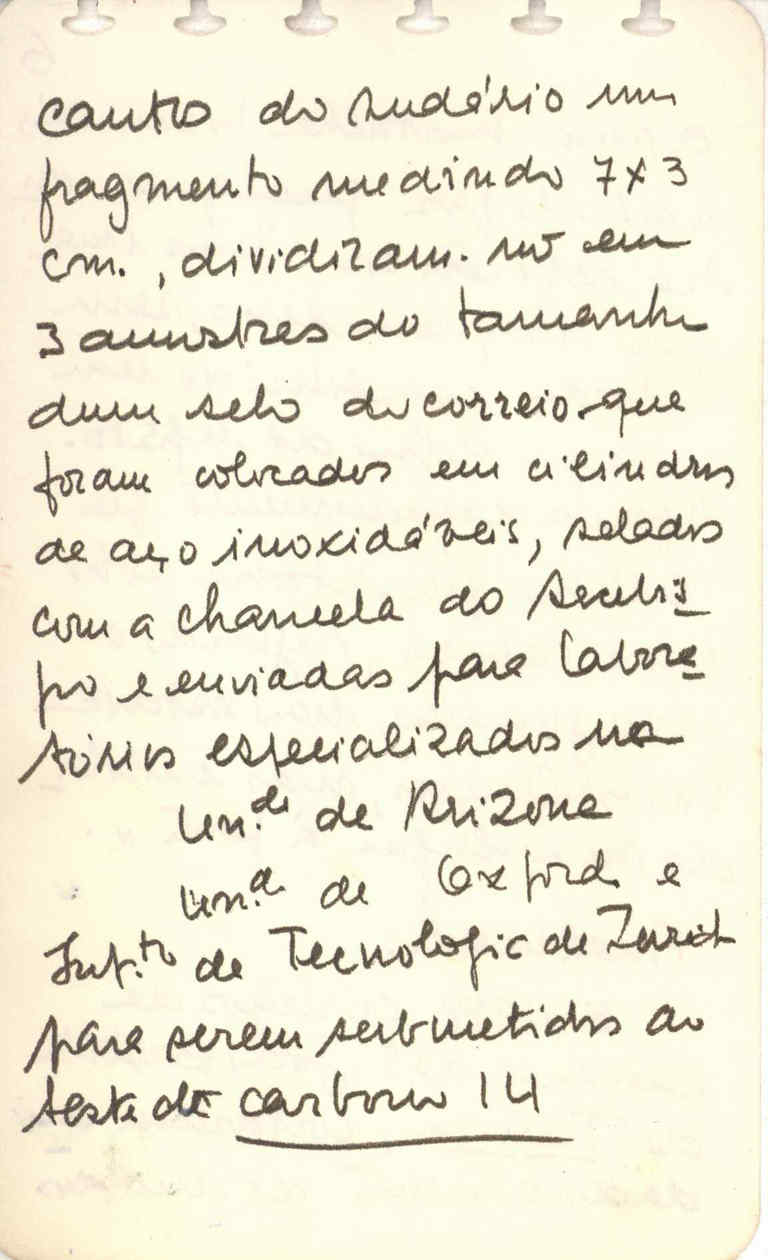 canto do sudário um
fragmento medindo 7x3
cm., dividiram-no em
3 amostras do tamanho
dum selo do correio que
foram colocados em cilindros
de aço inoxidáveis, selados
com a chancela do Arcebis
po e enviadas para labora
tórios especializados na
Un.de de Arizona
Un.de de Oxford e
Inst.to de Tecnologia de Zurich
para serem submetidos ao
teste de carbono 14